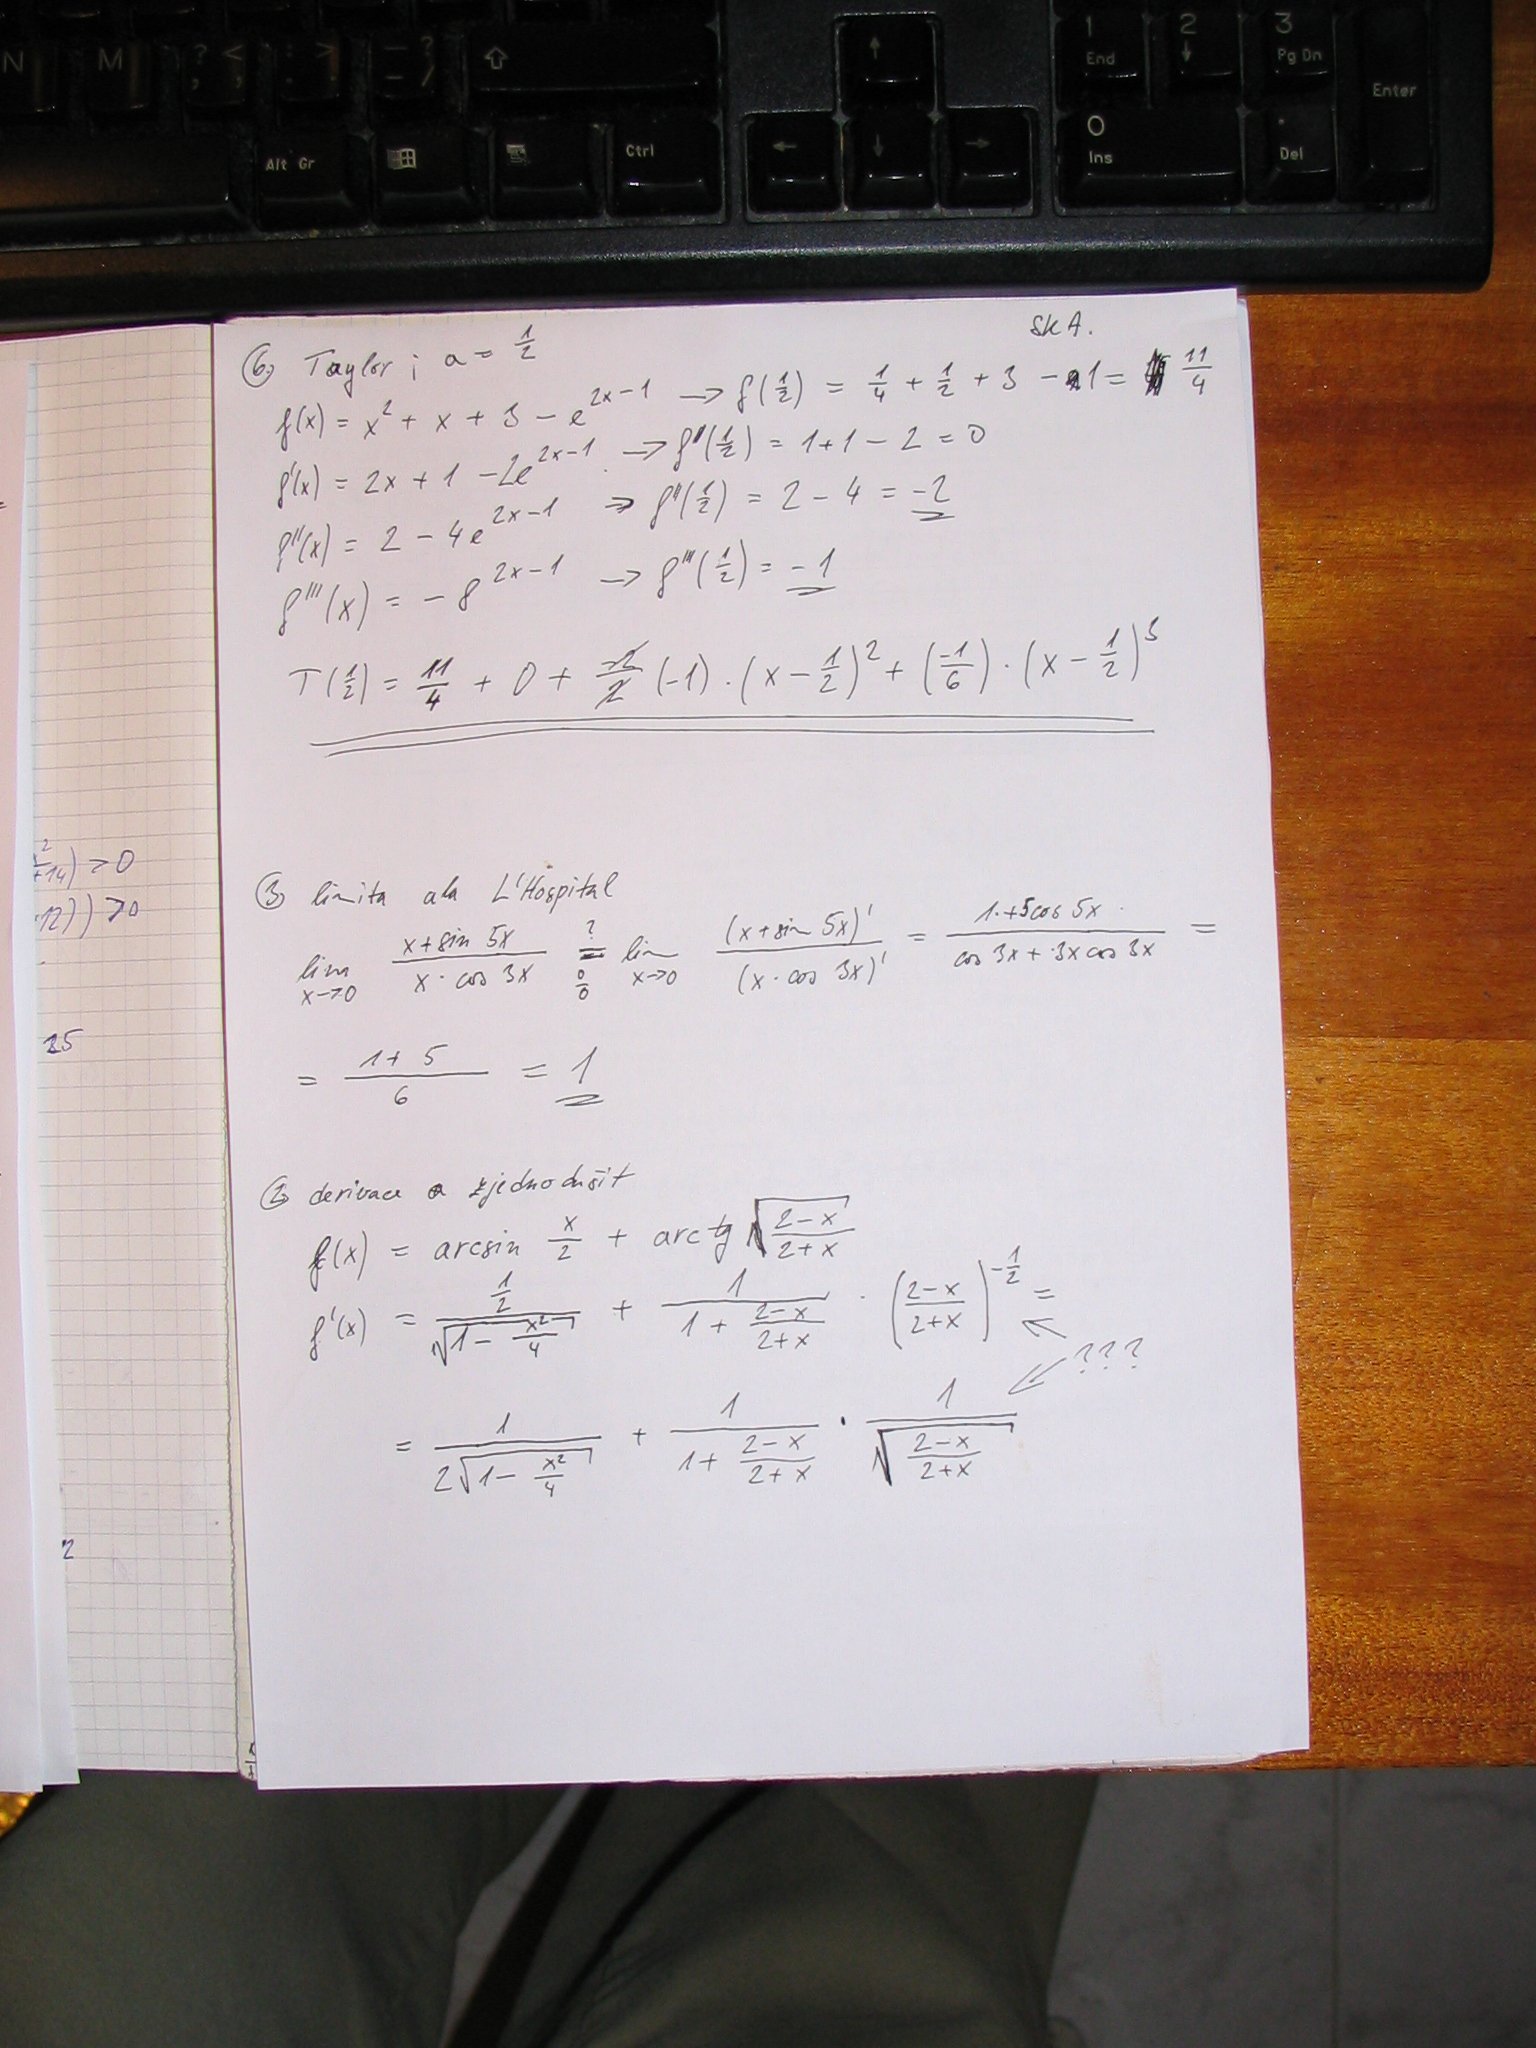 N M ? < : > — ? ⇧ ↑ 1 2 3
, , . . _ / End ↓ Pg Dn Enter
Alt Gr Ctrl ← ↓ → 0 .
Ins Del
Sk A.
6. Taylor ; a = 1/2
f(x) = x² + x + 3 − e^(2x−1) → f(1/2) = 1/4 + 1/2 + 3 − 1 = 11/4
f'(x) = 2x + 1 − 2e^(2x−1) → f'(1/2) = 1+1 − 2 = 0
f''(x) = 2 − 4e^(2x−1) → f''(1/2) = 2 − 4 = −2
f'''(x) = −8^(2x−1) → f'''(1/2) = −1
T(1/2) = 11/4 + 0 + −2/2 (−1) · (x − 1/2)² + (−1/6) · (x − 1/2)³
x²
+14) > 0
12)) > 0
3. limita ala L'Hospital
lim x→0 (x + sin 5x)/(x · cos 3x) =? 0/0 lim x→0 (x + sin 5x)'/(x · cos 3x)' = (1 + 5cos 5x)/(cos 3x + 3x cos 3x) =
15
= (1 + 5)/6 = 1
2. derivace a zjednodušit
f(x) = arcsin x/2 + arctg √((2−x)/(2+x))
f'(x) = (1/2)/√(1 − x²/4) + 1/(1 + (2−x)/(2+x)) · ((2−x)/(2+x))^(−1/2) =
???
= 1/(2√(1 − x²/4)) + 1/(1 + (2−x)/(2+x)) · 1/√((2−x)/(2+x))
2